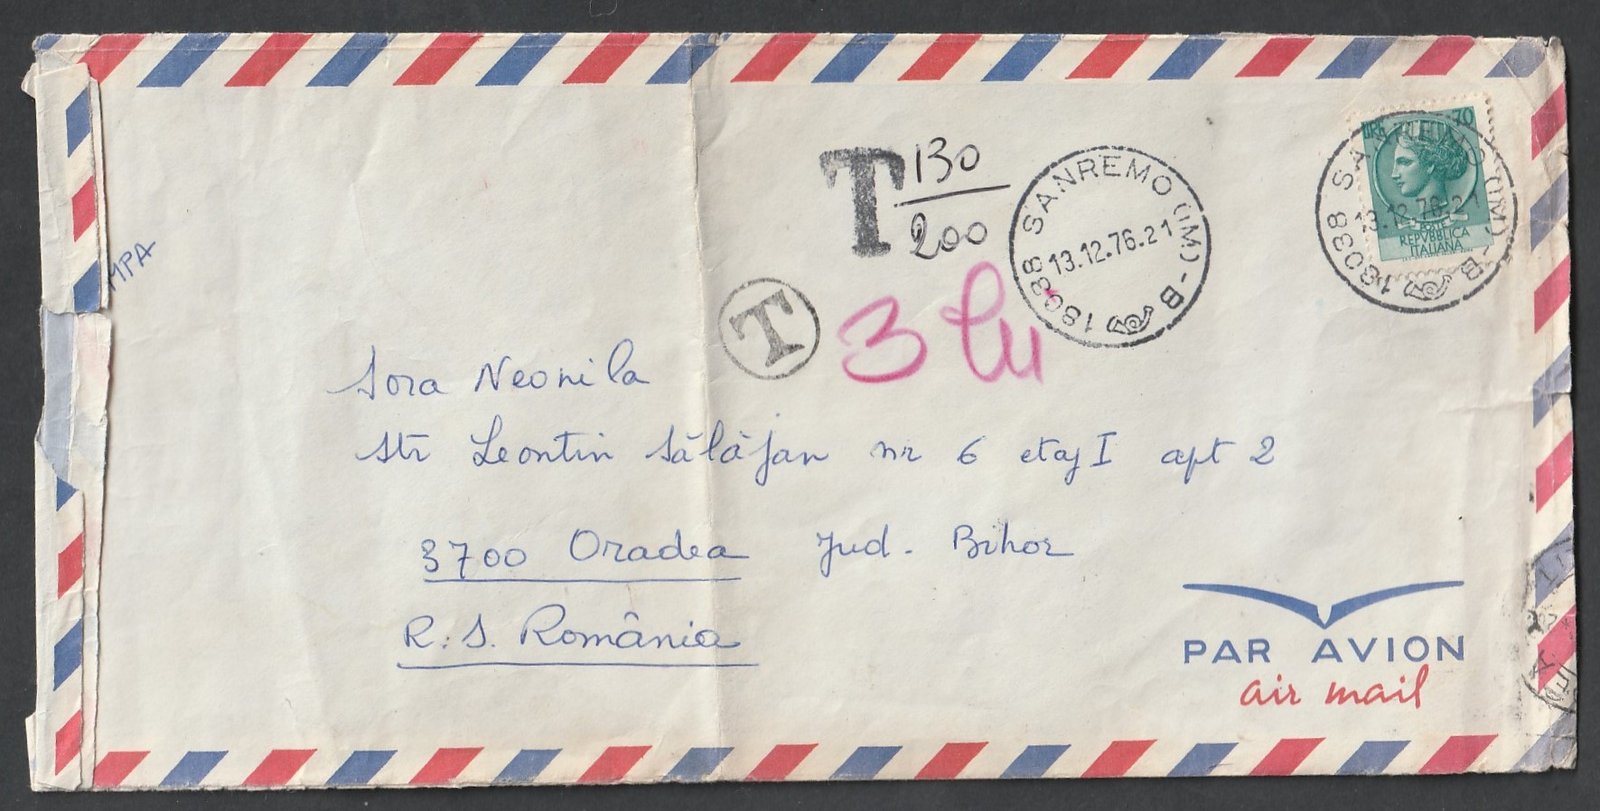 LIRE 70
POSTE
REPVBBLICA
ITALIANA
18038 SANREMO (IM) - B
13.12.76.21
18038 SANREMO (IM) - B
13.12.76.21
T 130
200
T
3 lei
MPA
Sora Neonila
str Leontin Sălăjan nr 6 etaj I apt 2
3700 Oradea Jud. Bihor
R. S. România
PAR AVION
air mail